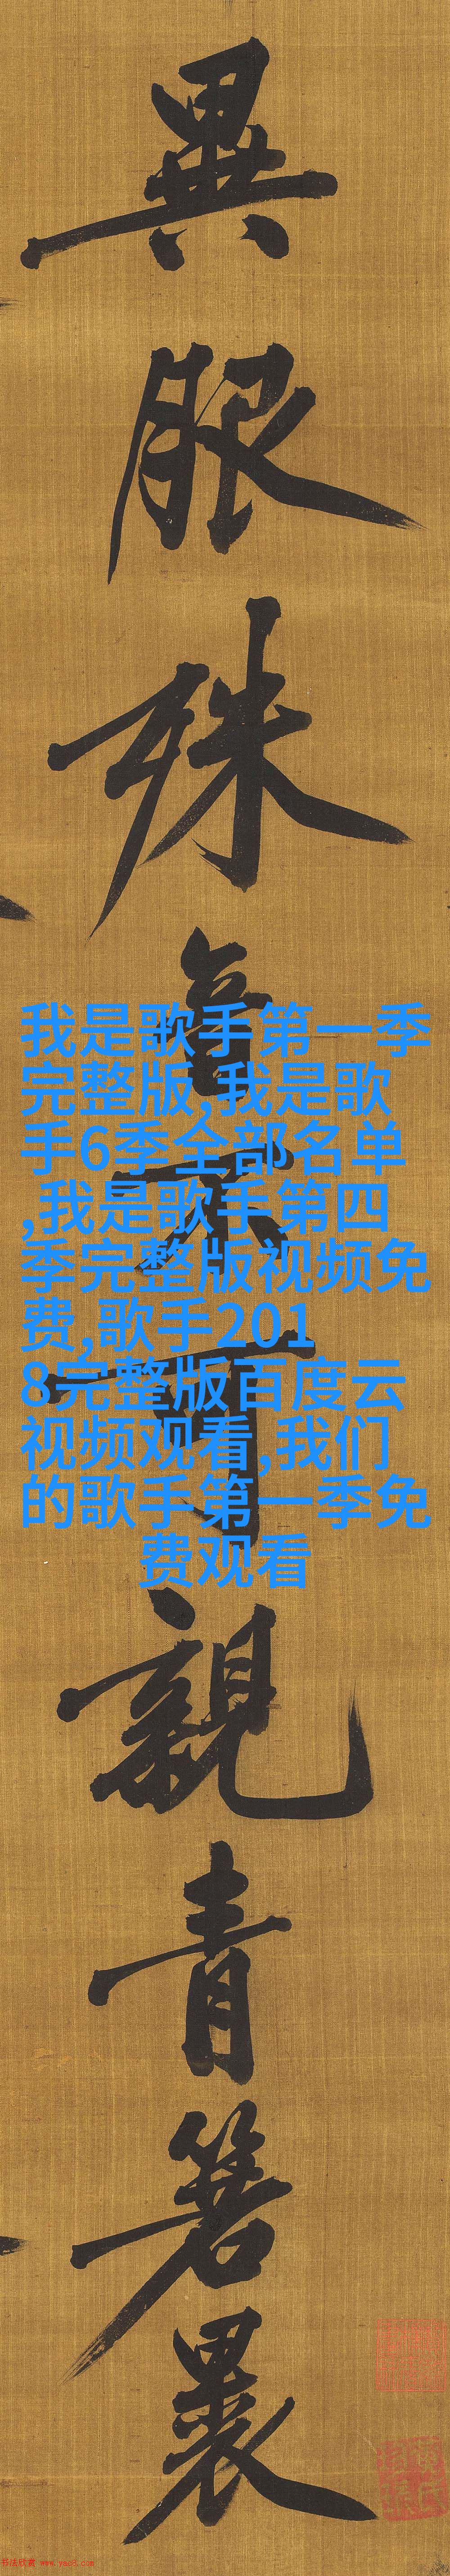 異
服
殊
音
不
可
親
青
箬
裹
我是歌手第一季
完整版,我是歌
手6季全部名单
,我是歌手第四
季完整版视频免
费,歌手201
8完整版百度云
视频观看,我们
的歌手第一季免
费观看
书法欣赏 www.yac8.com